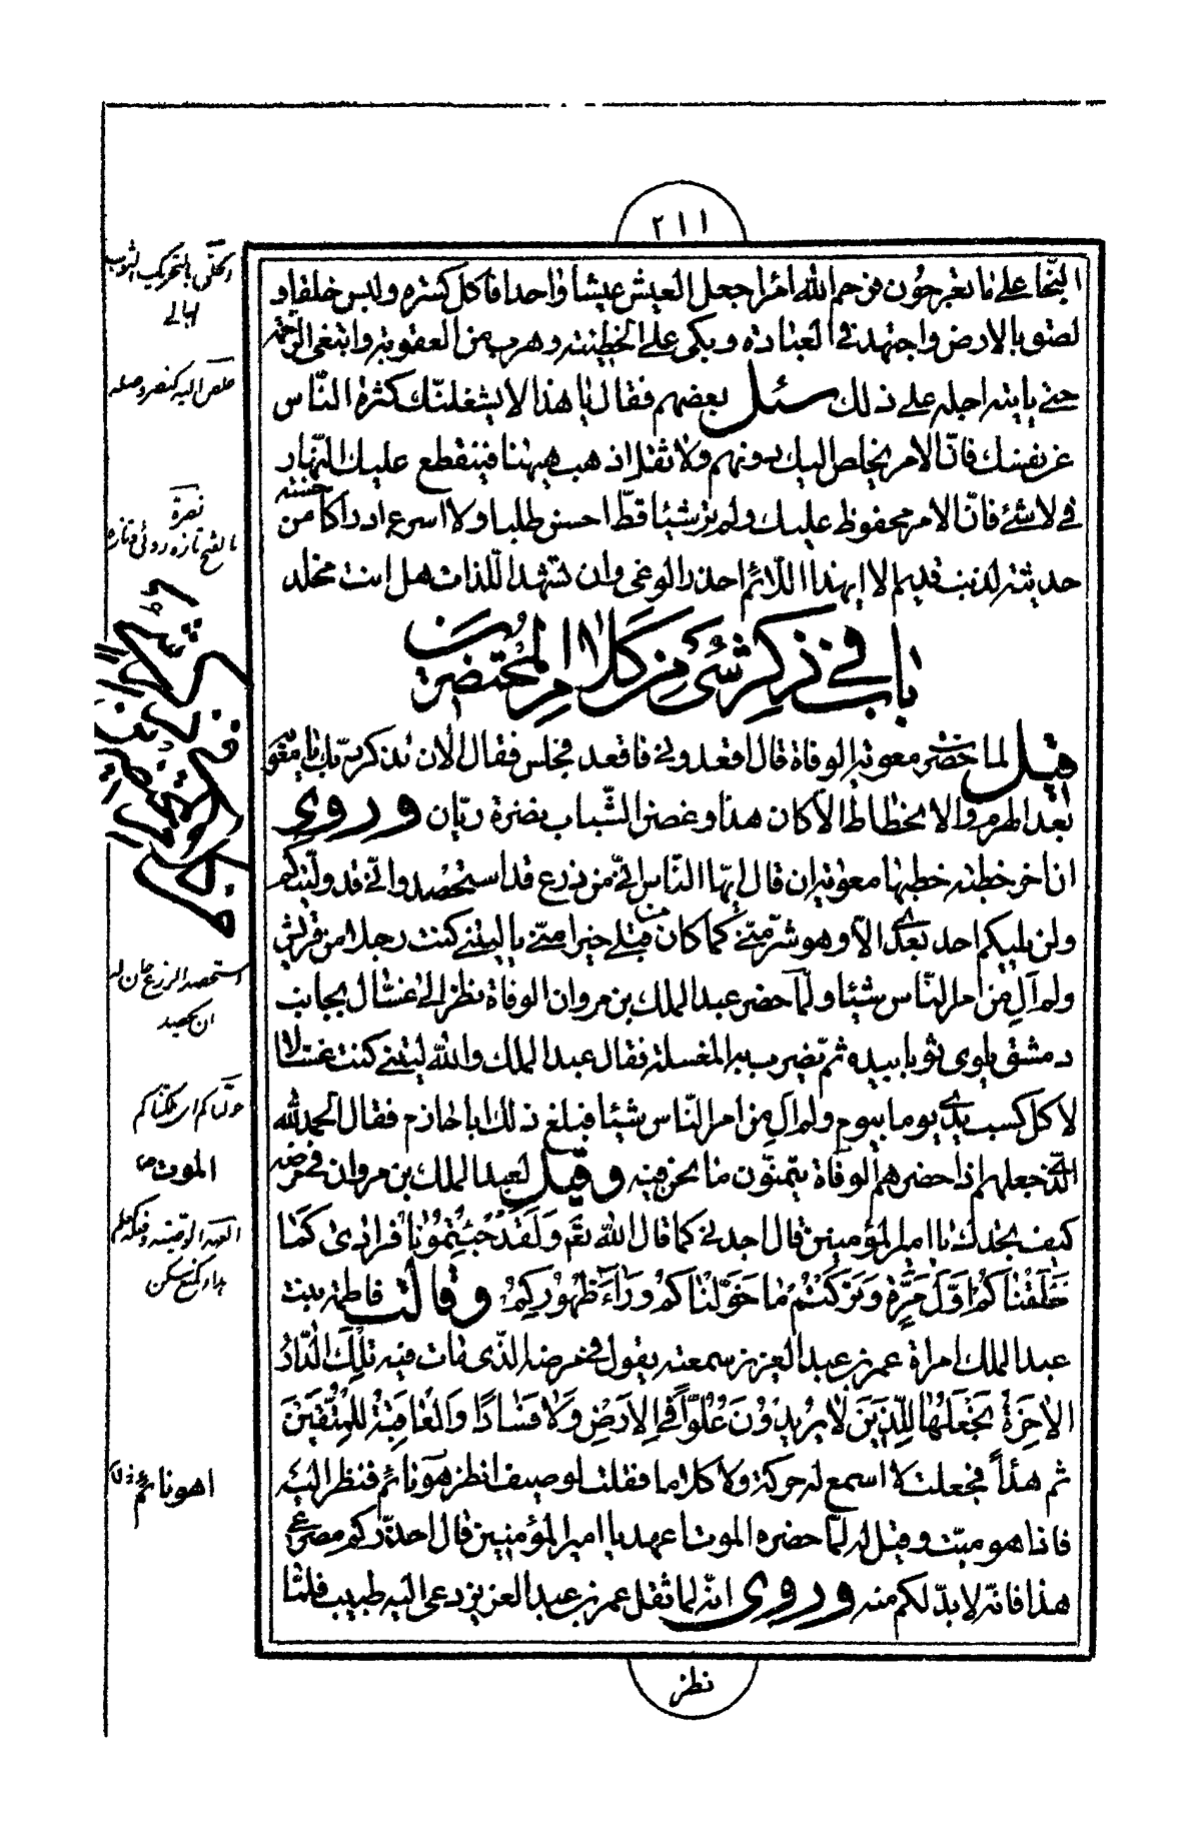 ٢١١
النجا على ما تعرجون فرحم الله امرأ جعل العيش عيشا واحدا فاكل كسرة ولبس خلقا و
لصق بالارض واجتهد فى العبادة وبكى على الخطيئة وهرب من العقوبة وابتغى الرحمة
حتى ياتيه اجله على ذلك سئل بعضهم فقال يا هذا لا يشغلنّك كثرة النّاس
عن نفسك فانّ الامر يخلص اليك دونهم ولا تقل اذهب هيهنا فينقطع عليك النّهار
فى لا شئ فانّ الامر محفوظ عليك ولم تر شيئا قطّ احسن طلبا ولا اسرع ادراكا من حسنة
حديثة لذنب قديم الا ايهذا اللّائم احذر الوغى وان تشهد اللّذات هل انت مخلد
باب فى ذكر شئ من كلام المحتضرين
قيل لما حضرت معوية الوفاة قال اقعدونى فاقعد فجلس فقال الآن تذكر ربّك يا معوية
بعد الهرم والانحطاط الا كان هذا وغصن الشّباب بنضرة ريّان وروى
ان اخر خطبة خطبها معوية ان قال ايّها النّاس انّى من زرع قد استحصد وانّى قد ولّيتكم
ولن يليكم احد بعدى الا وهو شرّ منّى كما كان من قبلى خيرا منّى يا ليتنى كنت رجلا من قريش
ولم آل من امر النّاس شيئا ولمّا حضر عبد الملك بن مروان الوفاة نظر الى غسّال بجانب
دمشق يلوى ثوبا بيده ثم يضرب به المغسلة فقال عبد الملك والله ليتنى كنت غسّالا
لا كل كسب يدى يوما بيوم ولم آل من امر النّاس شيئا فبلغ ذلك ابا حازم فقال الحمد لله
الّذى جعلهم اذا حضرهم الوفاة يتمنّون ما نحن فيه وقيل لعبد الملك بن مروان فى مرضه
كيف تجدك يا امير المؤمنين قال اجدنى كما قال الله تعَ وَلَقَدْ جِئْتُمُونَا فُرَادَى كَمَا
خَلَقْنَاكُمْ اَوَّلَ مَرَّةٍ وَتَرَكْتُمْ مَا خَوَّلْنَاكُمْ وَرَاءَ ظُهُورِكُمْ وقالت فاطمة بنت
عبد الملك امراة عمر بن عبد العزيز سمعته يقول فى مرضه الّذى مات فيه تِلْكَ الدَّارُ
الآخِرَةُ نَجْعَلُهَا لِلَّذِينَ لَا يُرِيدُونَ عُلُوًّا فِى الاَرْضِ وَلَا فَسَادًا وَالْعَاقِبَةُ لِلْمُتَّقِينَ
ثم هدأ فجعلت لا اسمع له حركة ولا كلاما فقلت لوصيف انظر هو نائم فنظر اليه
فاذا هو ميّت وقيل له لمّا حضره الموت اعهد يا امير المؤمنين قال احذّركم مصرعى
هذا فانّه لا بدّ لكم منه وروى انّه لما ثقل عمر بن عبد العزيز دعى اليه طبيب فلمّا
نظر
الخلق بالتحريك الثوب
البالى
خلص اليه كنصر وصله
نضرة
بالفتح تازه روئى
فى ذكر شئ
من كلام المحتضرين
استحصد الزرع حان له
ان يحصد
خوّلناكم اى ملكناكم
الموت
العهد الوصيّة
هدا كمنع سكن
اهو نائم